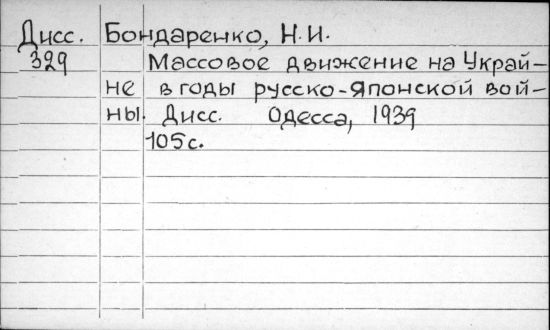 Дисс. Бондаренко, Н.И.
329 Массовое движение на Украй-
не в годы русско-Японской вой-
ны. Дисс. Одесса, 1939
105с.